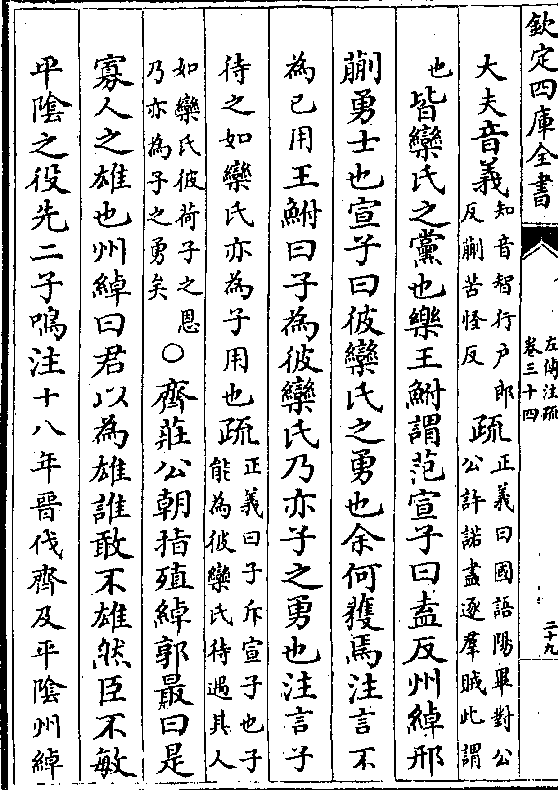 欽定四庫全書
左傳注疏
卷三十四
二十九
大夫音義知音智行户郎
反蒯苦怪反
疏正義曰國語陽畢對公
公許諾盡逐羣賊此謂
也皆欒氏之黨也樂王鮒謂范宣子曰盍反州綽邢
蒯勇士也宣子曰彼欒氏之勇也余何獲焉注言不
為已用王鮒曰子為彼欒氏乃亦子之勇也注言子
待之如欒氏亦為子用也疏正義曰子斥宣子也子
能為彼欒氏待遇其人
如欒氏彼荷子之恩
乃亦為子之勇矣
○齊莊公朝指殖綽郭最曰是
寡人之雄也州綽曰君以為雄誰敢不雄然臣不敏
平陰之役先二子鳴注十八年晉伐齊及平陰州綽